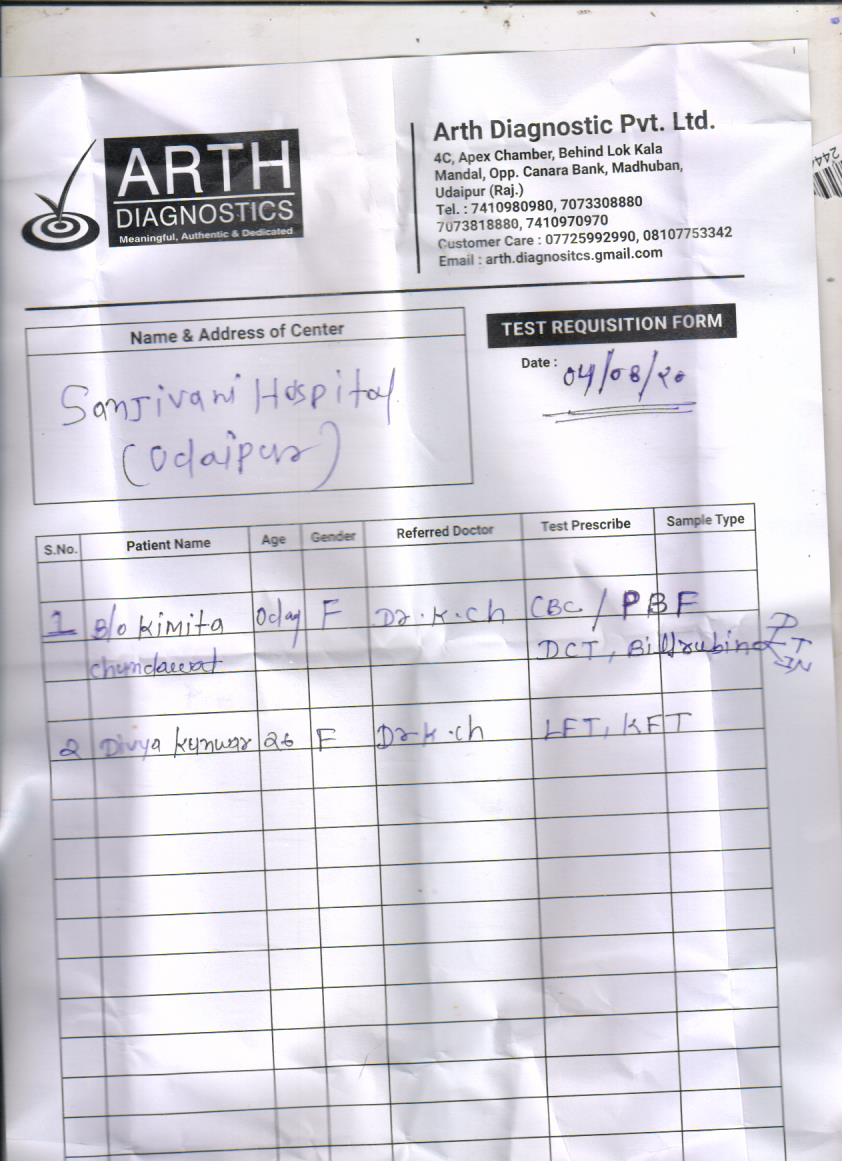 ARTH
DIAGNOSTICS
Meaningful, Authentic & Dedicated
Arth Diagnostic Pvt. Ltd.
4C, Apex Chamber, Behind Lok Kala
Mandal, Opp. Canara Bank, Madhuban,
Udaipur (Raj.)
Tel. : 7410980980, 7073308880
7073818880, 7410970970
Customer Care : 07725992990, 08107753342
Email : arth.diagnositcs.gmail.com
Name & Address of Center
Sanjivani Hospital
(Udaipur)
TEST REQUISITION FORM
Date : 04/08/20
S.No. Patient Name Age Gender Referred Doctor Test Prescribe Sample Type
1 B/o Kimita 0day F Dr.K.ch CBC / PBF
chundawat DCT, Billirubin D T IN
2 Divya Kunwar 26 F Dr K.ch LFT, KFT